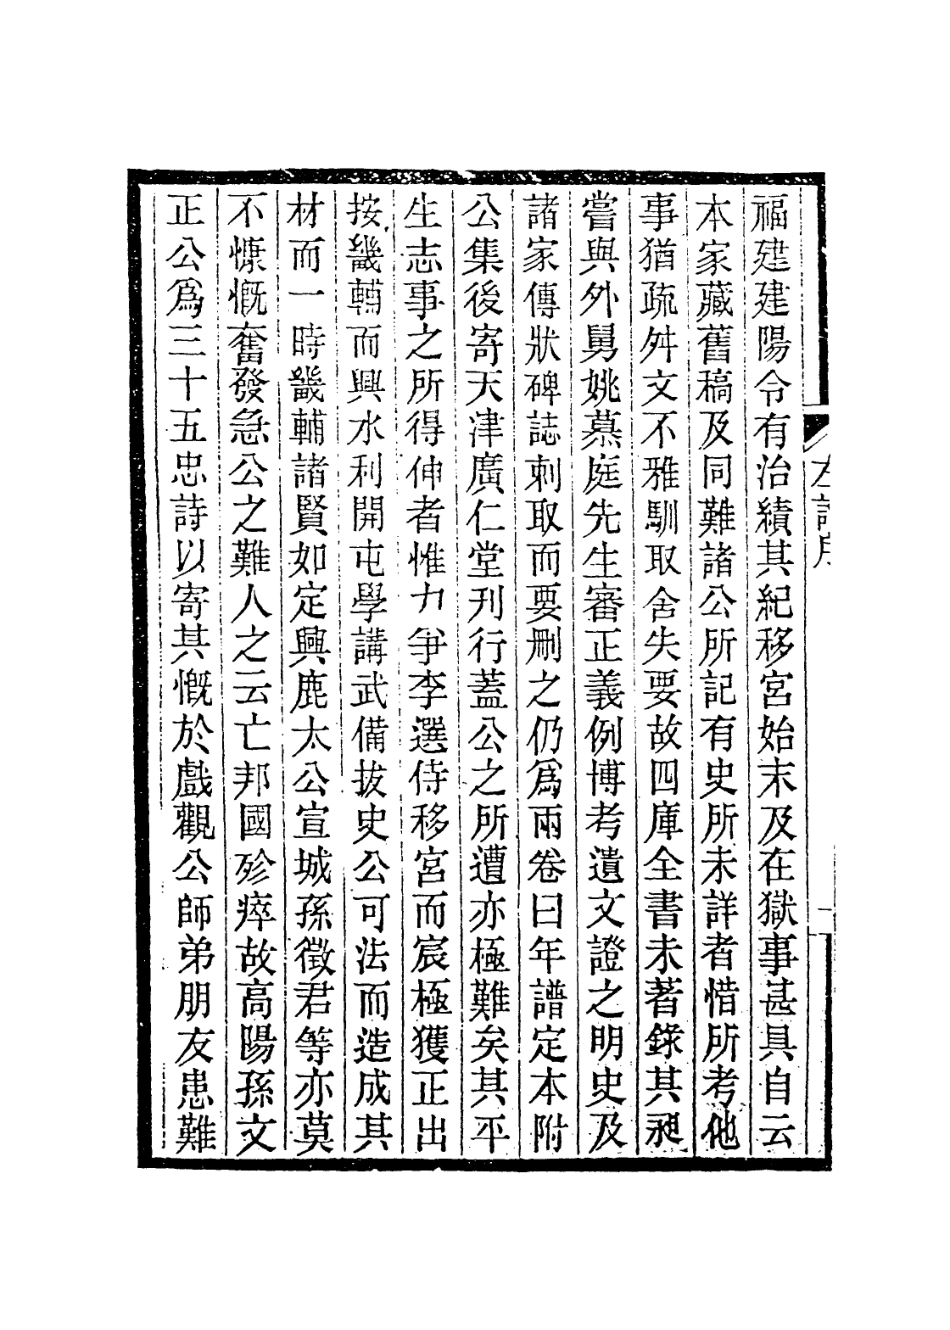 福建建陽令有治績其紀移宮始末及在獄事甚具自云
本家藏舊稿及同難諸公所記有史所未詳者惜所考他
事猶疏舛文不雅馴取舍失要故四庫全書未著錄其昶
嘗與外舅姚慕庭先生審正義例博考遺文證之明史及
諸家傳狀碑誌刺取而要刪之仍爲兩卷曰年譜定本附
公集後寄天津廣仁堂刊行蓋公之所遭亦極難矣其平
生志事之所得伸者惟力爭李選侍移宮而宸極獲正出
按畿輔而興水利開屯學講武備拔史公可法而造成其
材而一時畿輔諸賢如定興鹿太公宣城孫徵君等亦莫
不慷慨奮發急公之難人之云亡邦國殄瘁故高陽孫文
正公爲三十五忠詩以寄其慨於戲觀公師弟朋友患難